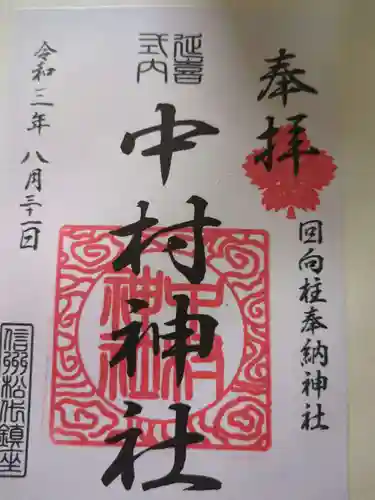 奉拝
回向柱奉納神社
延喜
式内
中村神社
令和三年八月三十一日
信州松代鎮座